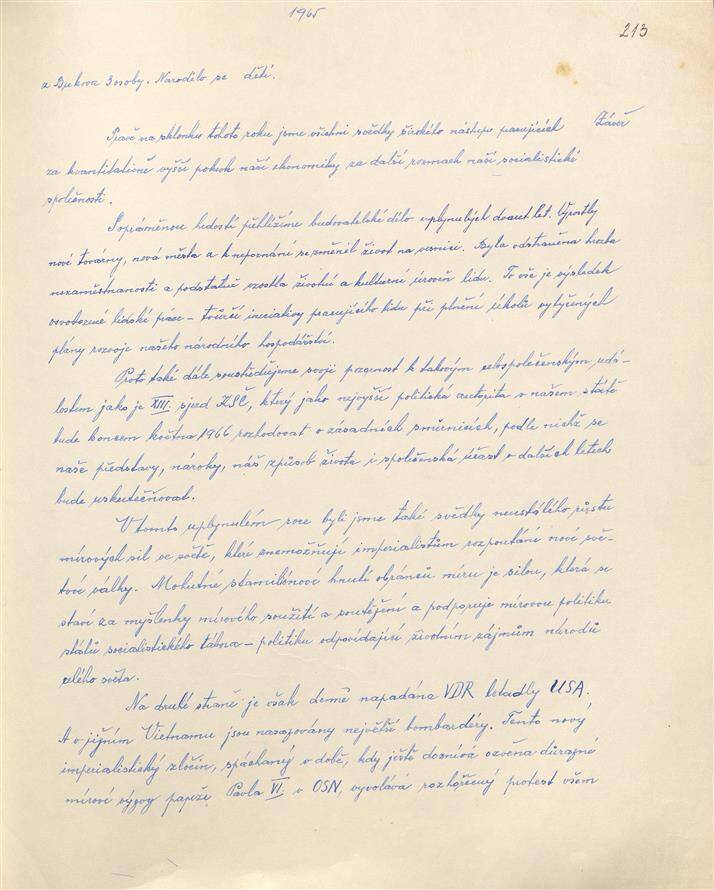 1965
213
z Bukova 3 osoby. Narodilo se dětí.
Závěr
Právě na sklonku tohoto roku jsme všichni svědky širokého nástupu pracujících
za kvantitativně vyšší pokrok naší ekonomiky za další rozmach naší socialistické
společnosti.
S oprávněnou hrdostí přehlížíme budovatelské dílo uplynulých dvaceti let. Vyrostly
nové továrny, nová města a k nepoznání se změnil život na vesnici. Byla odstraněna hrozba
nezaměstnanosti a podstatně vzrostla životní a kulturní úroveň lidu. To vše je výsledek
osvobozené lidské práce – tvůrčí iniciativy pracujícího lidu při plnění úkolů vytyčených
plány rozvoje našeho národního hospodářství.
Proto také dále soustřeďujeme svoji pozornost k takovým celospolečenským udá-
lostem jako je XIII. sjezd KSČ, který jako nejvyšší politická autorita v našem státě
bude koncem května 1966 rozhodovat o zásadních směrnicích, podle nichž se
naše představy, nároky, náš způsob života i společenská účast v dalších letech
bude uskutečňovat.
V tomto uplynulém roce byli jsme také svědky neustálého růstu
mírových sil ve světě, které znemožňují imperialistům rozpoutání nové svě-
tové války. Mohutné stamiliónové hnutí obránců míru je silou, která se
staví za myšlenky mírového soužití a soutěžení a podporuje mírovou politiku
států socialistického tábora – politiku odpovídající životním zájmům národů
celého světa.
Na druhé straně je však denně napadána VDR letadly USA.
A v jižním Vietnamu jsou nasazovány největší bombardéry. Tento nový
imperialistický zločin, spáchaný v době, kdy ještě doznívá ozvěna důrazné
mírové výzvy papeže Pavla VI. v OSN, vyvolává rozhořčený protest všem